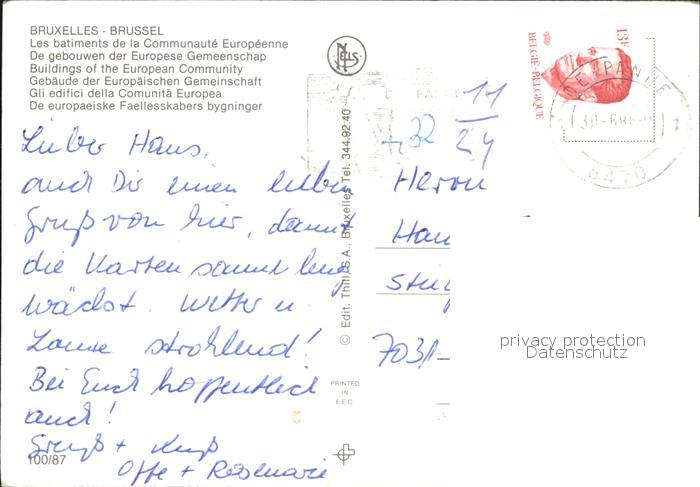 BRUXELLES - BRUSSEL
Les batiments de la Communauté Européenne
De gebouwen der Europese Gemeenschap
Buildings of the European Community
Gebäude der Europäischen Gemeinschaft
Gli edifici della Comunità Europea
De europaeiske Faellesskabers bygninger
NELS
13F
BELGIE-BELGIQUE
DE PANNE
8470
11/24
Lieber Hans,
auch Dir einen lieben
Gruß von hier, damit
die Kartensammlung
wächst. Wetter u.
Laune strahlend!
Bei Euch hoffentlich
auch!
Gruß + Kuß
Offe + Rosemarie
Herrn
Han
7031
© Edit. Thill, S.A., Bruxelles Tel. 344.92.40
PRINTED
IN
E.E.C.
100/87
privacy protection
Datenschutz